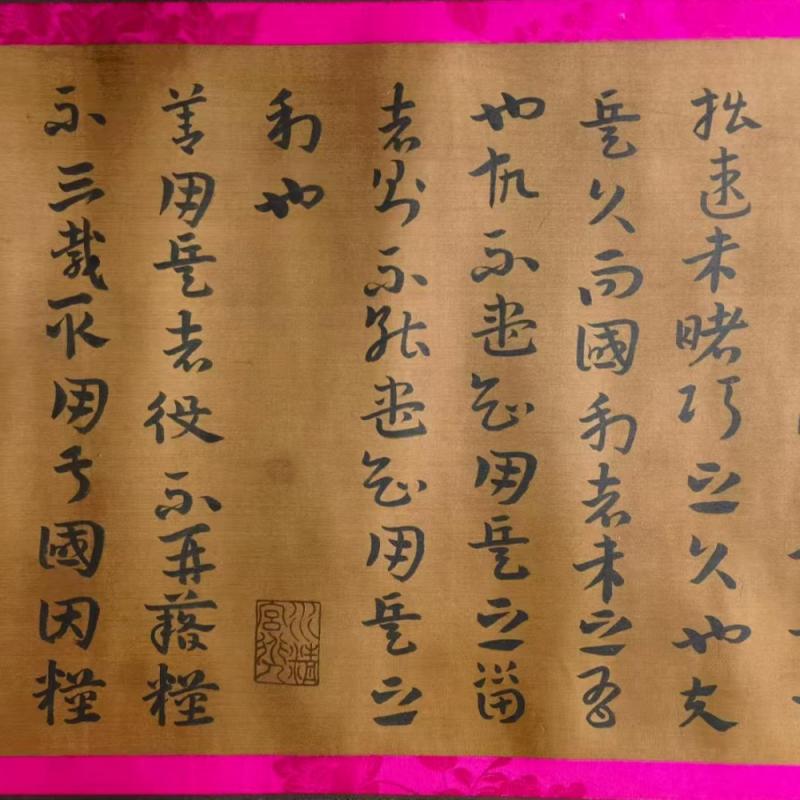 拙速未睹巧之久也夫
兵久而國利者未之有
也故不盡知用兵之害
者則不能盡知用兵之
利也
善用兵者役不再藉糧
不三載取用于國因糧